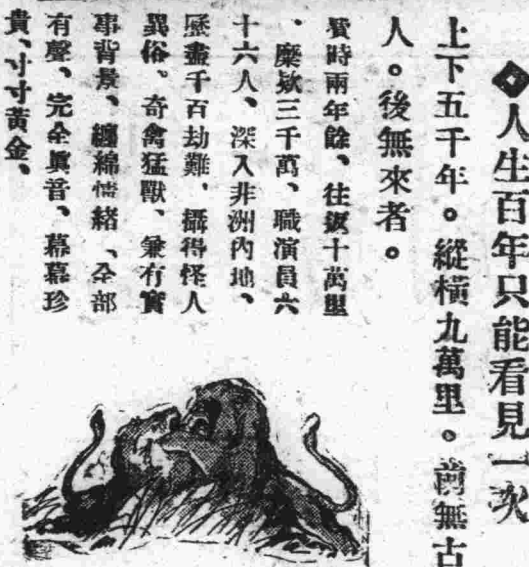 ◆人生百年只能看見一次
上下五千年。縱橫九萬里。前無古
人。後無來者。
費時兩年餘、往返十萬里
、糜欵三千萬、職演員六
十六人、深入非洲內地、
歷盡千百劫難、攝得怪人
異俗、奇禽猛獸、兼有實
事背景、纏綿情緒、全部
有聲、完全眞音、幕幕珍
貴、寸寸黃金、